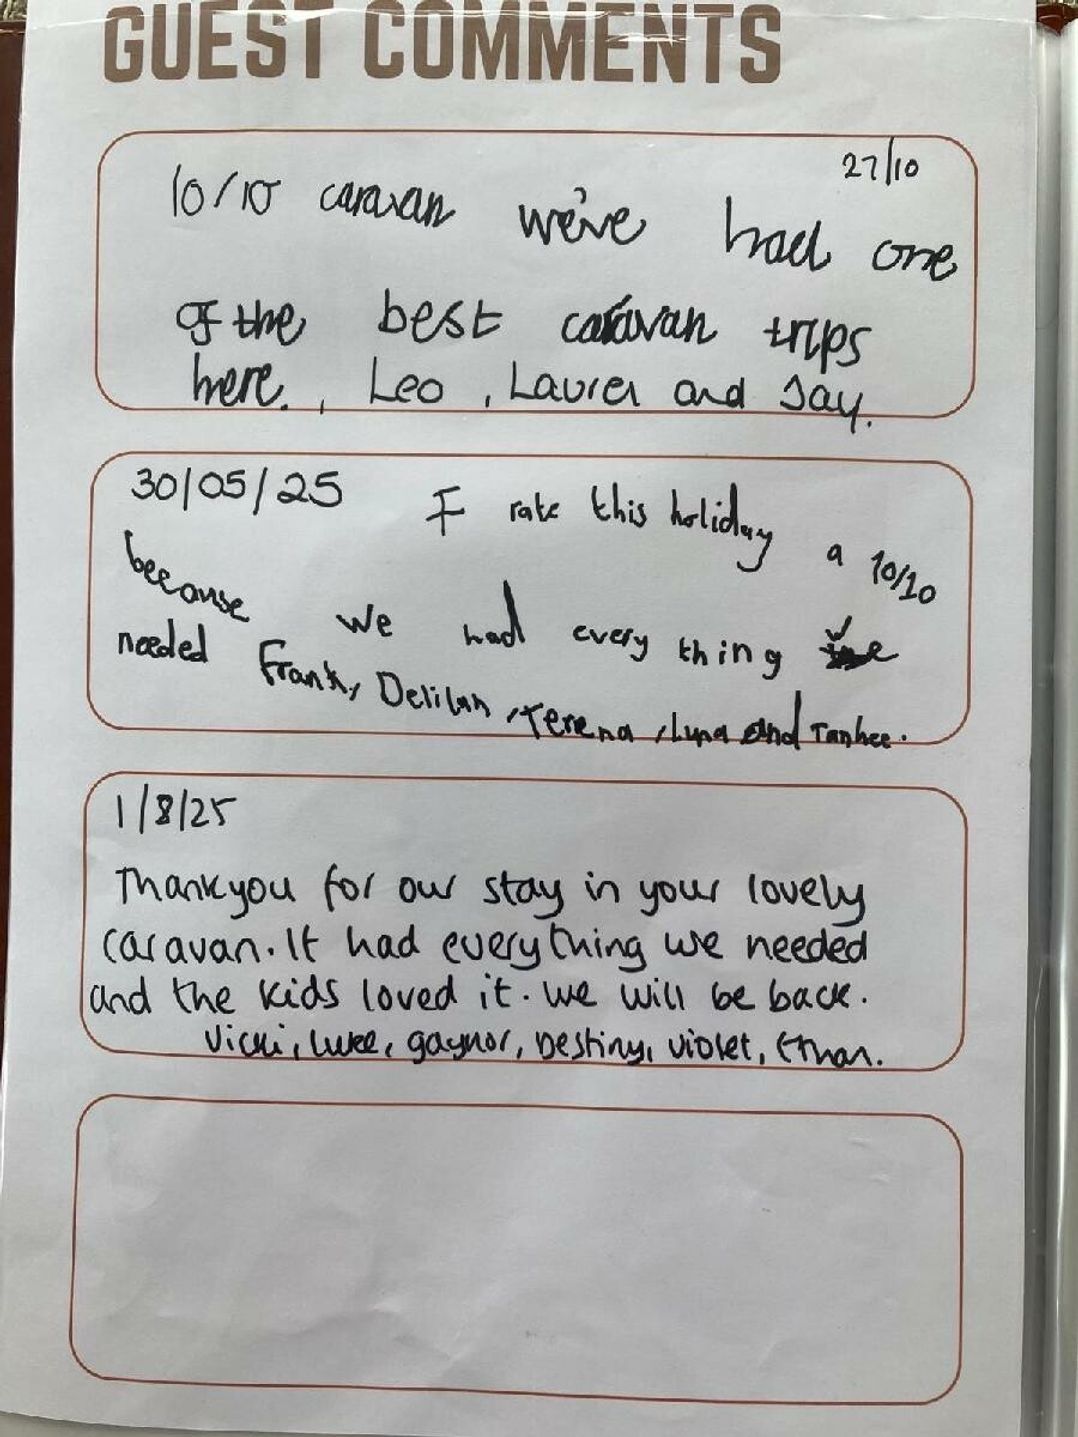 GUEST COMMENTS
27/10
10/10 caravan we've had one
of the best caravan trips
here. , Leo , Laurel and Jay.
30/05/25 I rate this holiday a 10/10
because we had every thing we
needed Frank, Delilah, Terena, Luna and
1/8/25
Thankyou for our stay in your lovely
caravan. It had everything we needed
and the kids loved it. we will be back.
Vicki, Luke, gaynor, Destiny, violet, Ethan.